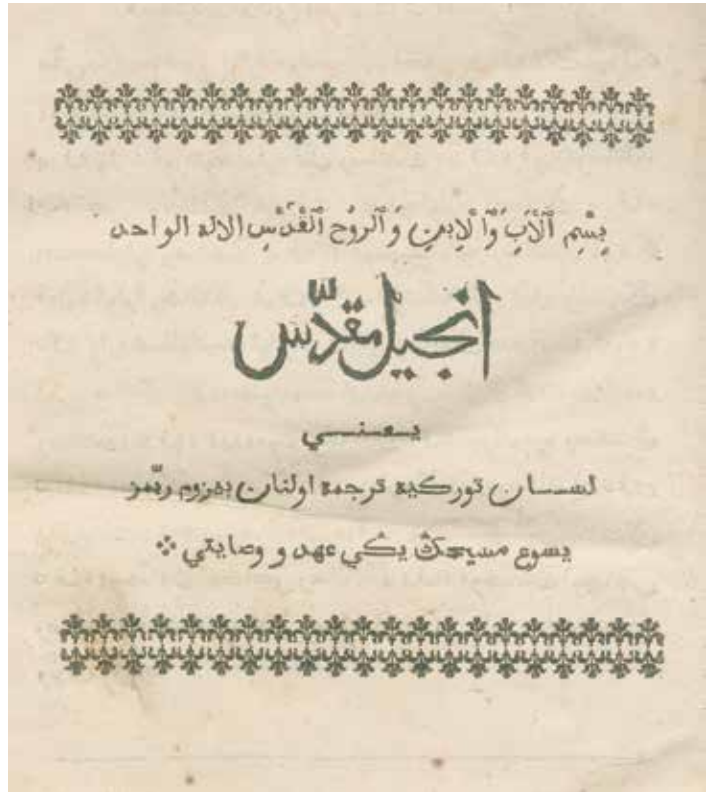 بِسْمِ ٱلْأَبَ وَٱلْإِبْنِ وَٱلرُوُحِ ٱلْقُدُسِ الاله الواحد
انجيل مقدّس
يـعـنـي
لســان توركيه ترجمه اولنان بيزوم ربّمز
يسوع مسيحڭ يڭي عهد و وصايتي ❖